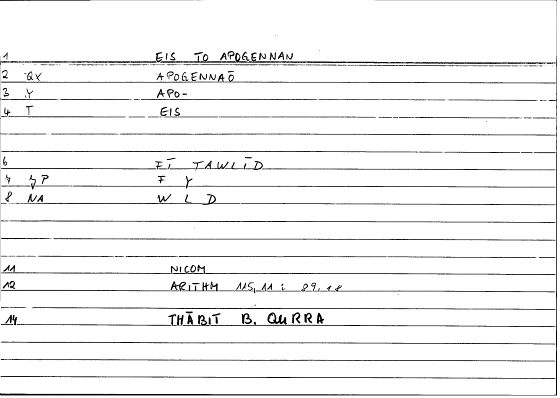 1 EIS TO APOGENNAN
2 QX APOGENNAŌ
3 Y APO-
4 T EIS
6 FĪ TAWLĪD
4 F Y
8 NA W L D
11 NICOM
12 ARITHM 115,11 : 89,18
14 THĀBIT B. QURRA